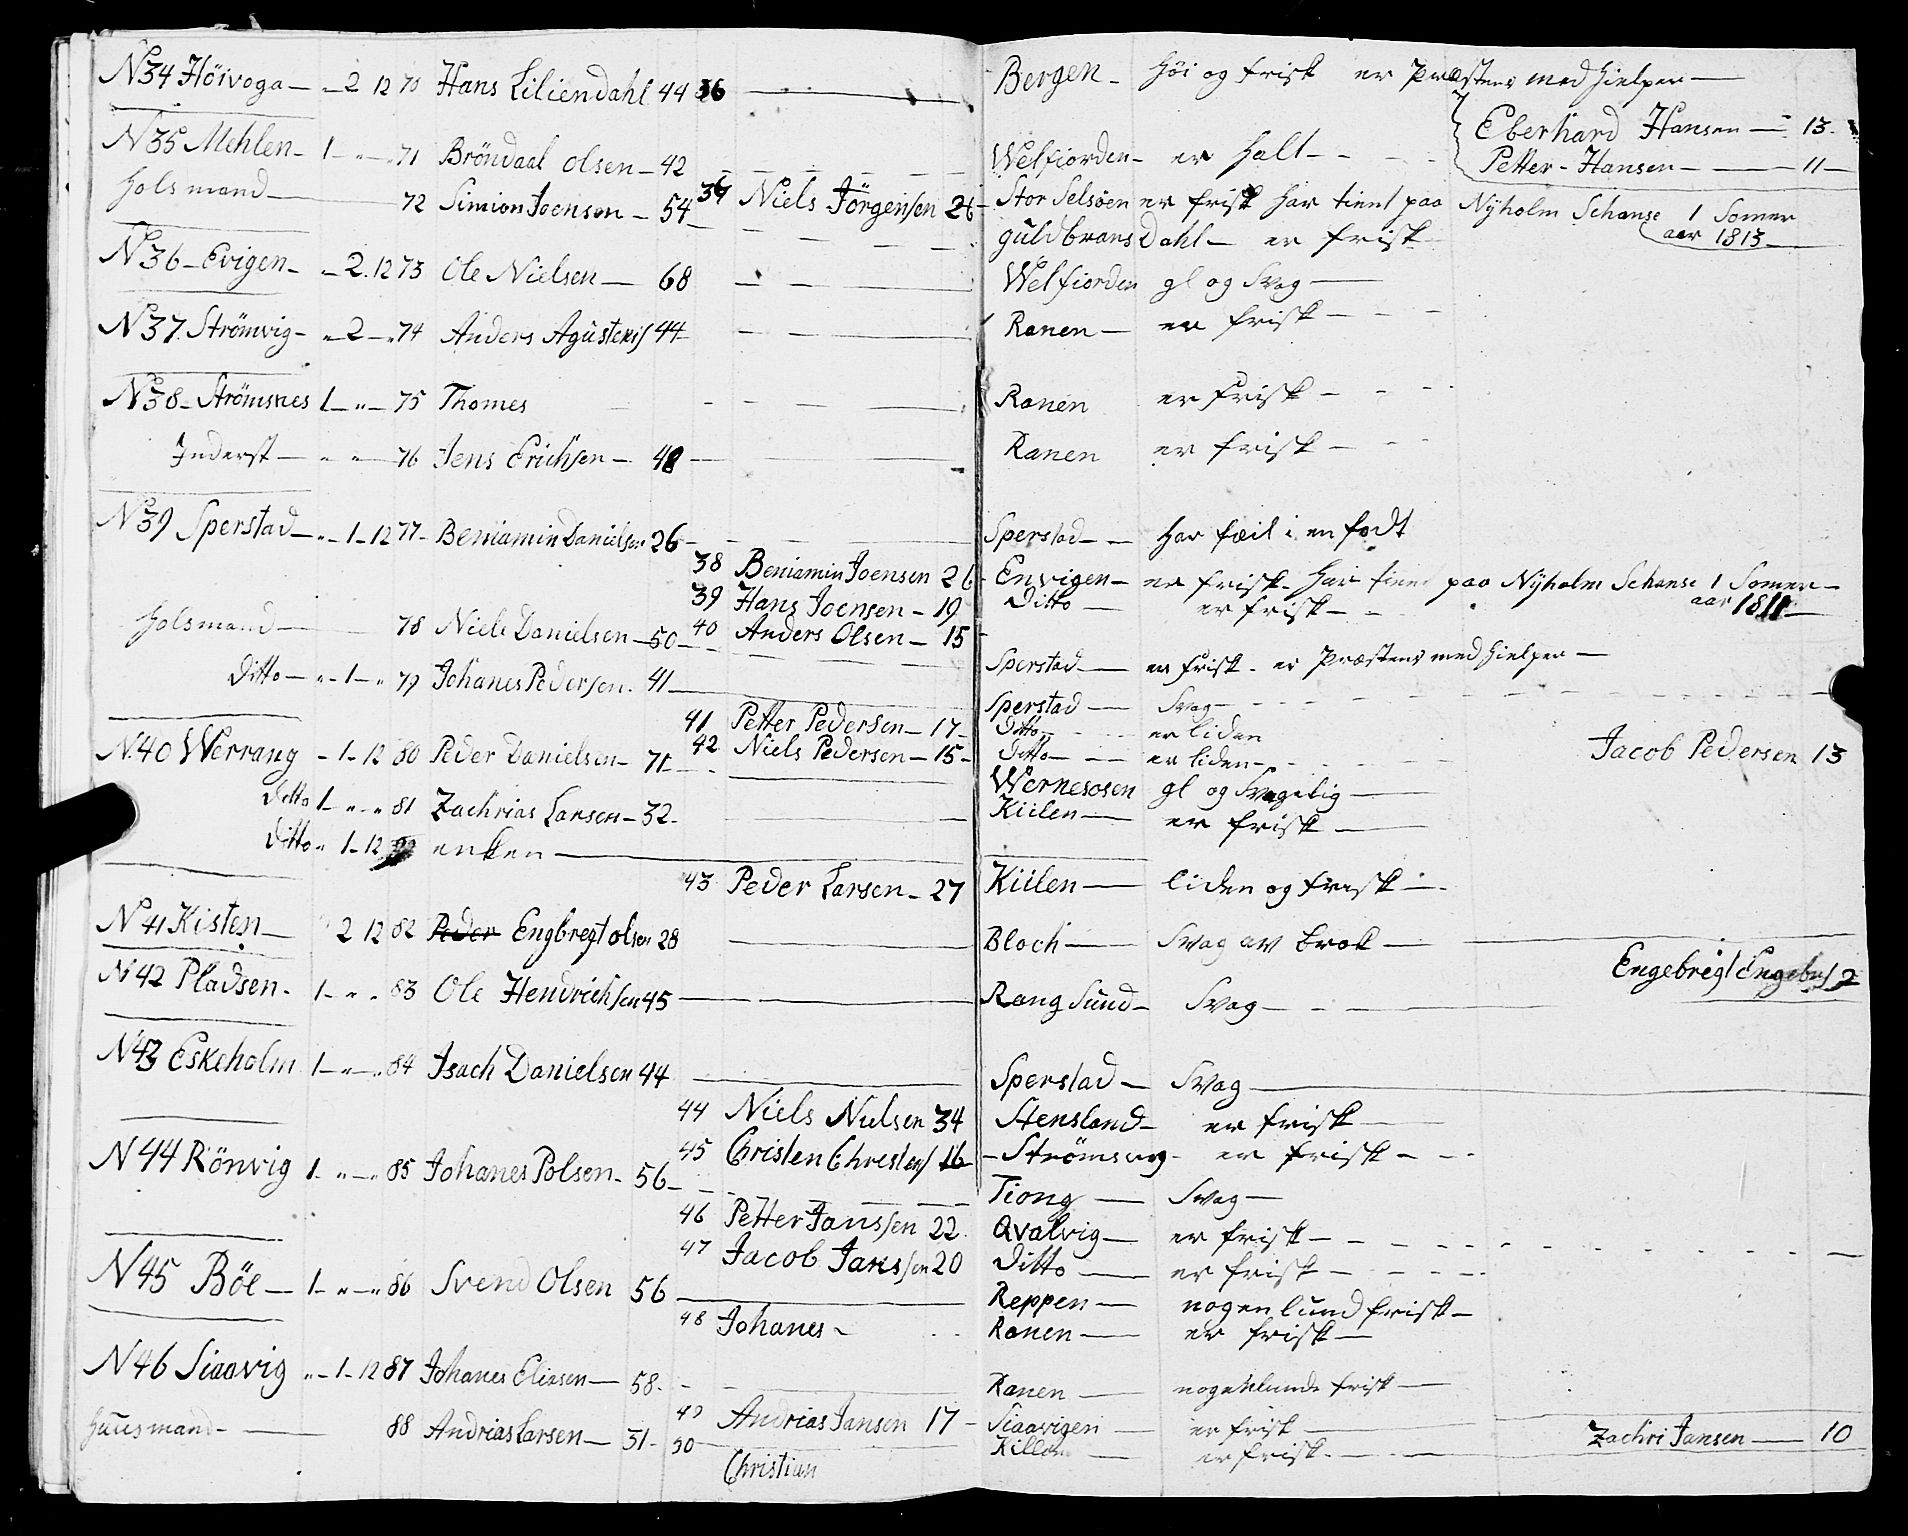 N34 Höivoga — „ 2 12 70 Hans Liliendahl 44 36 — Bergen — Höi og frisk er Præstens medhielper —
Eberhard Hansen — 13
N35 Mehlen — 1 — „ — 71 Bröndaal Olsen — 42 — Welfiorden — er Halt — Petter Hansen — 11
Holsmand — 72 Simion Joensen — 54 37 Niels Jörgensen 26 — Stor Selsöen er frisk har tient paa Nÿholm Schanse 1 Somer aar 1813
guldbrans Dahl — er frisk
N36 — Evigen — „ 2 . 12 73 Ole Nielsen — 68 — Welfiorden gl og Svag —
N37 Strömvig — „ — 2 — „ 74 Anders Agustens 44 — Ranen — er frisk —
N38 — Strömsnes 1 — „ — 75 Thomes — Ranen er frisk —
Inderst — „ „ — 76 Jens Erichsen — 48 — Ranen er frisk —
N39 Sperstad — „ — 1 — 12 77 — Beniamin Danielsen 26 — Sperstad — Har fæil i en fodt
38 Beniamin Joensen 26 — Envigen — er frisk — Har tient paa Nÿholm Schanse 1 Somer — aar 1811
39 Hans Joensen — 19 Ditto — er frisk —
Holsmand — 78 Niels Danielsen — 50 — 40 Anders Olsen — 15
Sperstad — er frisk . er Præstens medhielper —
Ditto — „ — 1 — „ 79 Johanes Pedersen . 41 — Sperstad — Svag —
41 Petter Pedersen — 17 — Ditto — er liden
N.40 Werrang — 1 — 12 80 Peder Danielsen — 71 — 42 Niels Pedersen — 15 — Ditto — er liden — Jacob Pedersen 13
Wernesosen gl og Svagelig —
Ditto 1 — „ — „ 81 Zachrias Larsen — 32 — Kiilen — er frisk —
Ditto „ 1 — 12 enken —
43 Peder Larsen — 27 Kiilen — liden og frisk —
N 41 Kisten — 2 12 82 Peder Engbregt olsen 28 — Bloch — Svag av brok — Engebregt Engebres 2
N 42 Pladsen . 1 — „ — „ 83 Ole Hendrichsen 45 — Rang Sund — Svag —
N43 Eskeholm 1 — „ — „ 84 Isach Danielsen 44 — Sperstad — Svag —
44 Niels Nielsen 34 Stensland — er frisk —
45 Christen Christens 16 — Strömsvig — er frisk —
N 44 Rönvig 1 . „ — „ 85 Johanes Polsen — 56 — Tiong — Svag —
46 Petter Janssen 22 Qvalvig — er frisk —
47 Jacob Janssen 20 Ditto — er frisk —
N 45 Böe — 1 — „ — „ 86 Svend Olsen 56 — Reppen — nogenlund frisk —
48 Johanes — Ranen — er frisk —
N46 Siaavig „ — 1 — 12 87 Johanes Eliasen — 58 — Ranen — nogenlunde frisk —
49 Andrias Jansen 17 — Siaavigen — er frisk — Zachri Jansen — 10
Huusmand — 88 Andrias Larsen — 51 — Killen — er frisk —
50 Christian